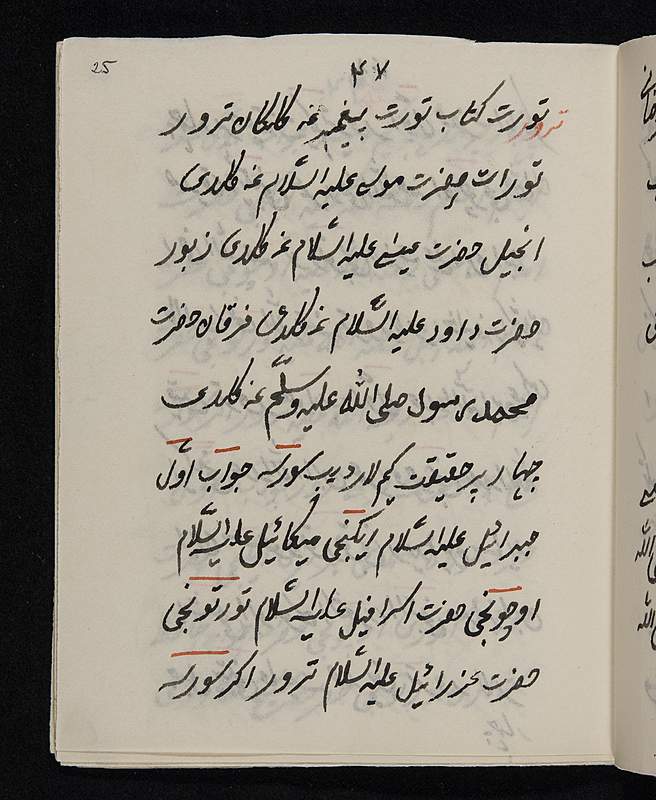 25
۴۷
تورت کتاب تورت پیغمبر غه کلکان ترور
ترور
تورات حضرت موسی علیه السّلام غه کلدی
انجیل حضرت عیسے علیه السّلام غه کلدی زبور
حضرت داود علیه السّلام غه کلدی فرقان حضرت
محمد رسول صلی اللّه علیه وسلّم غه کلدی
چهار پر حقیقت کیم لار دیب سورسه جواب اوّل
جبرائیل علیه السّلام ایکنجی میکائیل علیه السّلام
اوچونجی حضرت اسرافیل علیه السّلام تورتونجی
حضرت عزرائیل علیه السّلام ترور اکر سورسه